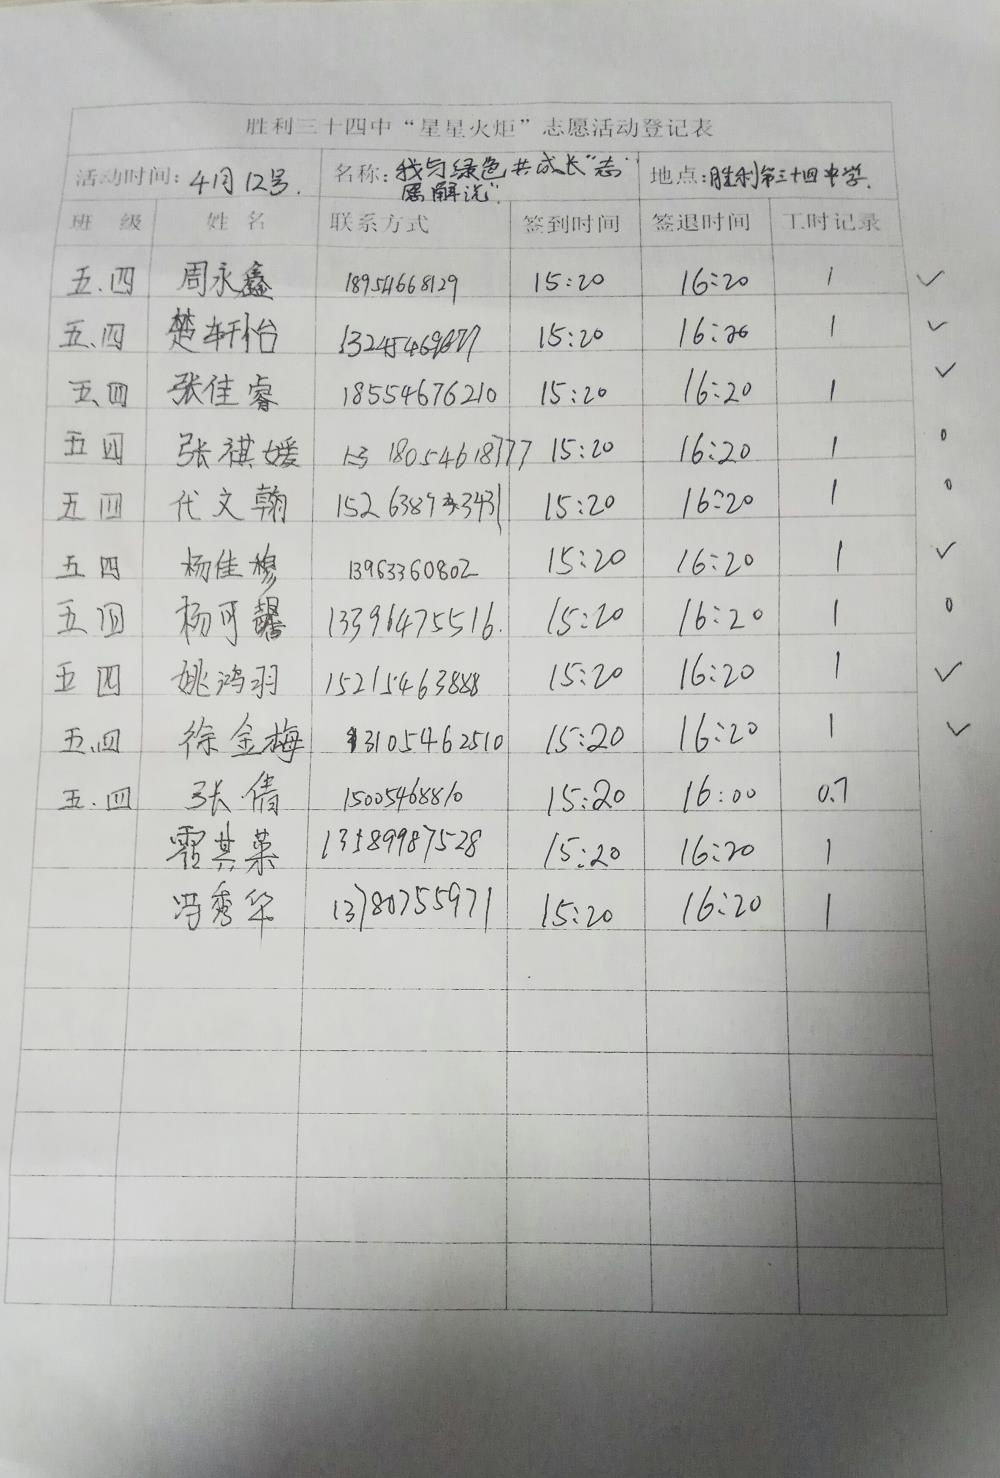 胜利三十四中“星星火炬”志愿活动登记表
活动时间：4月12号. 名称：我与绿色共成长“志 地点：胜利第三十四中学.
愿解说”
班 级 姓 名 联系方式 签到时间 签退时间 工时记录
五.四 周永鑫 18954668129 15:20 16:20 1 ✓
五.四 楚轩怡 15:20 16:20 1 ✓
五.四 张佳睿 18554676210 15:20 16:20 1 ✓
五四 张祺媛 18054618777 15:20 16:20 1 0
五四 代文翰 15:20 16:20 1 0
五.四 杨佳穆 13963360802 15:20 16:20 1 ✓
五.四 杨可馨 13396475516. 15:20 16:20 1 0
五四 姚鸿羽 15215463888 15:20 16:20 1 ✓
五.四 徐金梅 13105462510 15:20 16:20 1 ✓
五.四 张倩 15005468810 15:20 16:00 0.7
霍其菓 13589987528 15:20 16:20 1
冯秀华 13780755971 15:20 16:20 1